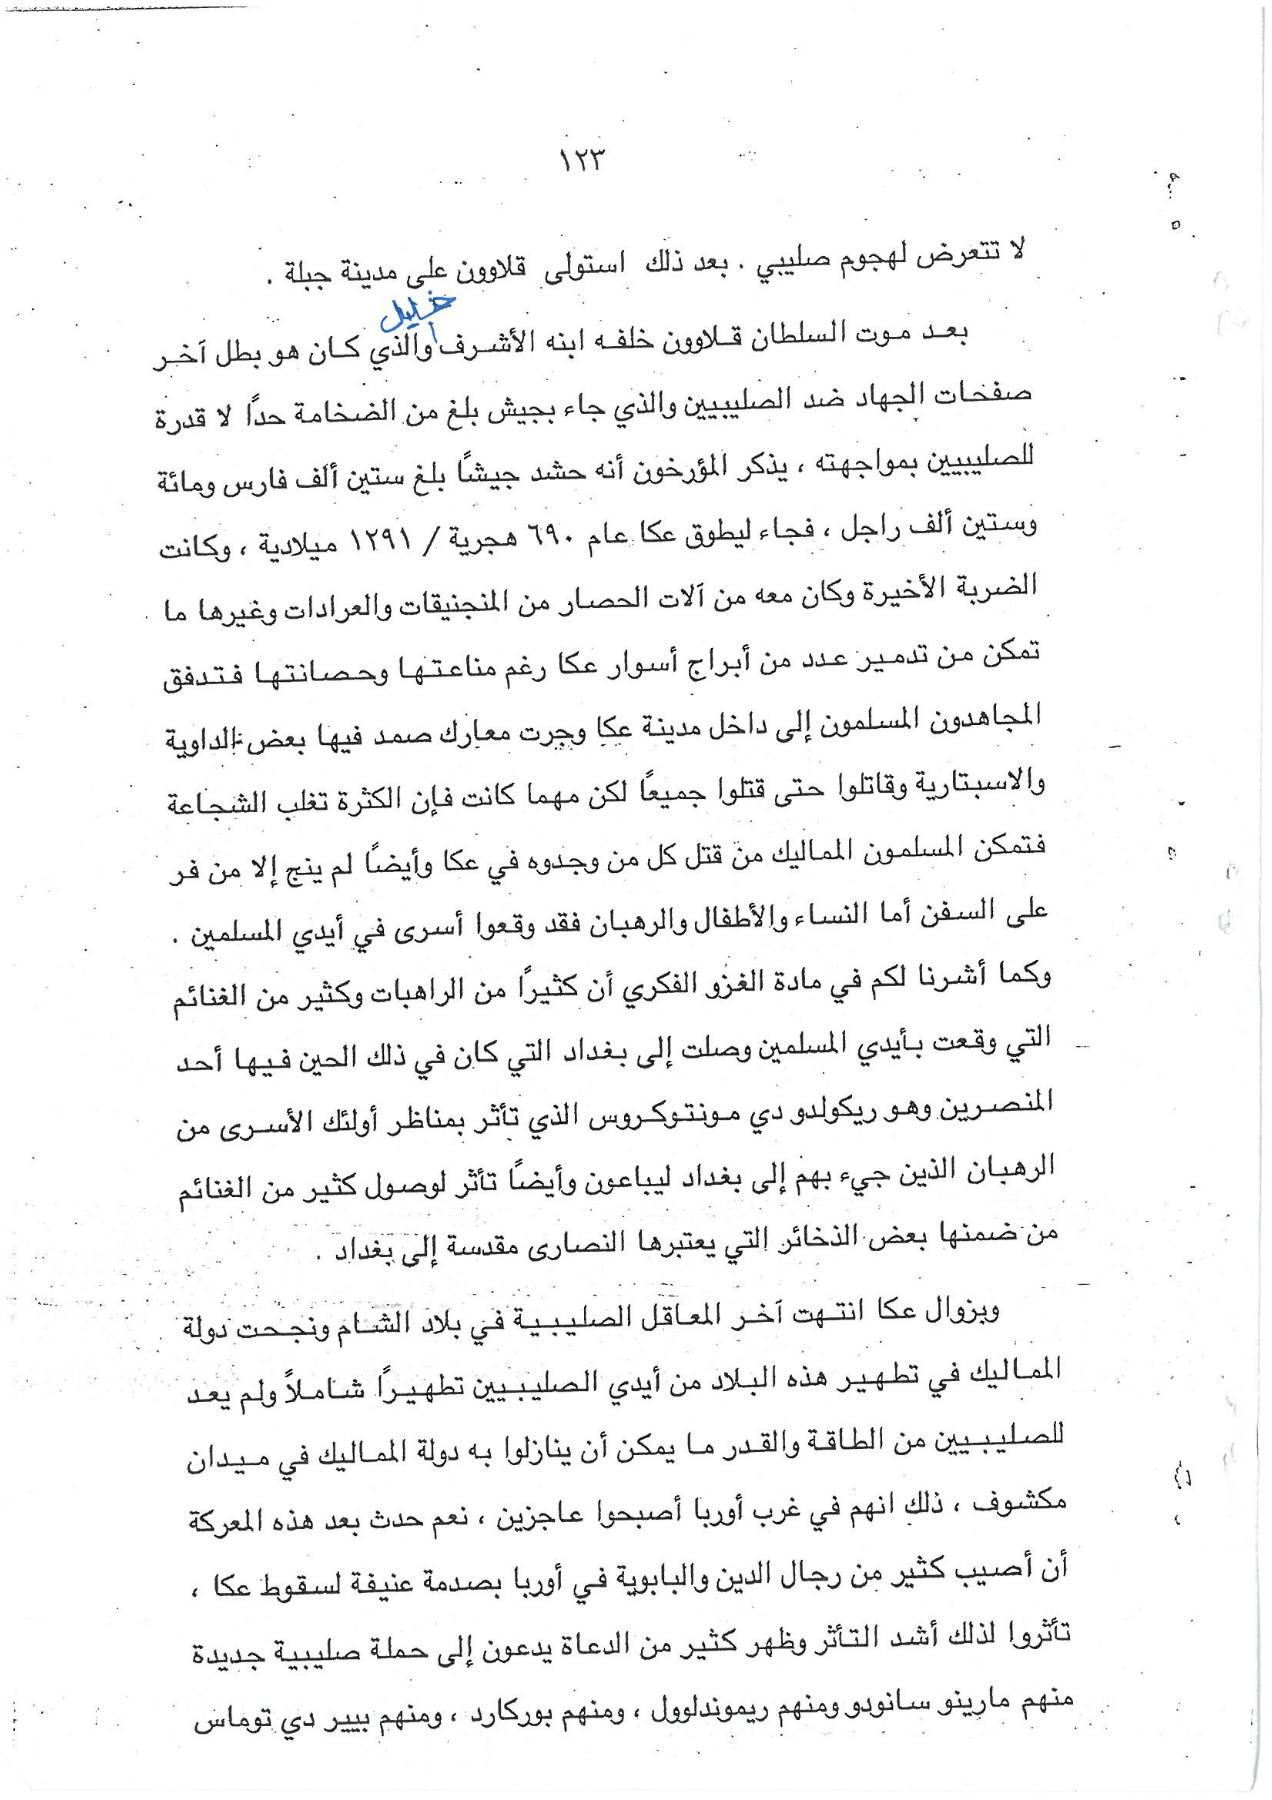 ١٢٣
لا تتعرض لهجوم صليبي . بعد ذلك استولى قلاوون على مدينة جبلة .
خليل
بعد موت السلطان قلاوون خلفه ابنه الأشرف والذي كان هو بطل آخر
صفحات الجهاد ضد الصليبيين والذي جاء بجيش بلغ من الضخامة حدًا لا قدرة
للصليبيين بمواجهته ، يذكر المؤرخون أنه حشد جيشًا بلغ ستين ألف فارس ومائة
وستين ألف راجل ، فجاء ليطوق عكا عام ٦٩٠ هجرية / ١٢٩١ ميلادية ، وكانت
الضربة الأخيرة وكان معه من آلات الحصار من المنجنيقات والعرادات وغيرها ما
تمكن من تدمير عدد من أبراج أسوار عكا رغم مناعتها وحصانتها فتدفق
المجاهدون المسلمون إلى داخل مدينة عكا وجرت معارك صمد فيها بعض الداوية
والاسبتارية وقاتلوا حتى قتلوا جميعًا لكن مهما كانت فإن الكثرة تغلب الشجاعة
فتمكن المسلمون المماليك من قتل كل من وجدوه في عكا وأيضًا لم ينج إلا من فر
على السفن أما النساء والأطفال والرهبان فقد وقعوا أسرى في أيدي المسلمين .
وكما أشرنا لكم في مادة الغزو الفكري أن كثيرًا من الراهبات وكثير من الغنائم
التي وقعت بأيدي المسلمين وصلت إلى بغداد التي كان في ذلك الحين فيها أحد
المنصرين وهو ريكولدو دي مونتوكروس الذي تأثر بمناظر أولئك الأسرى من
الرهبان الذين جيء بهم إلى بغداد ليباعون وأيضًا تأثر لوصول كثير من الغنائم
من ضمنها بعض الذخائر التي يعتبرها النصارى مقدسة إلى بغداد .
وبزوال عكا انتهت آخر المعاقل الصليبية في بلاد الشام ونجحت دولة
المماليك في تطهير هذه البلاد من أيدي الصليبيين تطهيرًا شاملاً ولم يعد
للصليبيين من الطاقة والقدر ما يمكن أن ينازلوا به دولة المماليك في ميدان
مكشوف ، ذلك انهم في غرب أوربا أصبحوا عاجزين ، نعم حدث بعد هذه المعركة
أن أصيب كثير من رجال الدين والبابوية في أوربا بصدمة عنيفة لسقوط عكا ،
تأثروا لذلك أشد التأثر وظهر كثير من الدعاة يدعون إلى حملة صليبية جديدة
منهم مارينو سانودو ومنهم ريموندلوول ، ومنهم بوركارد ، ومنهم بيير دي توماس